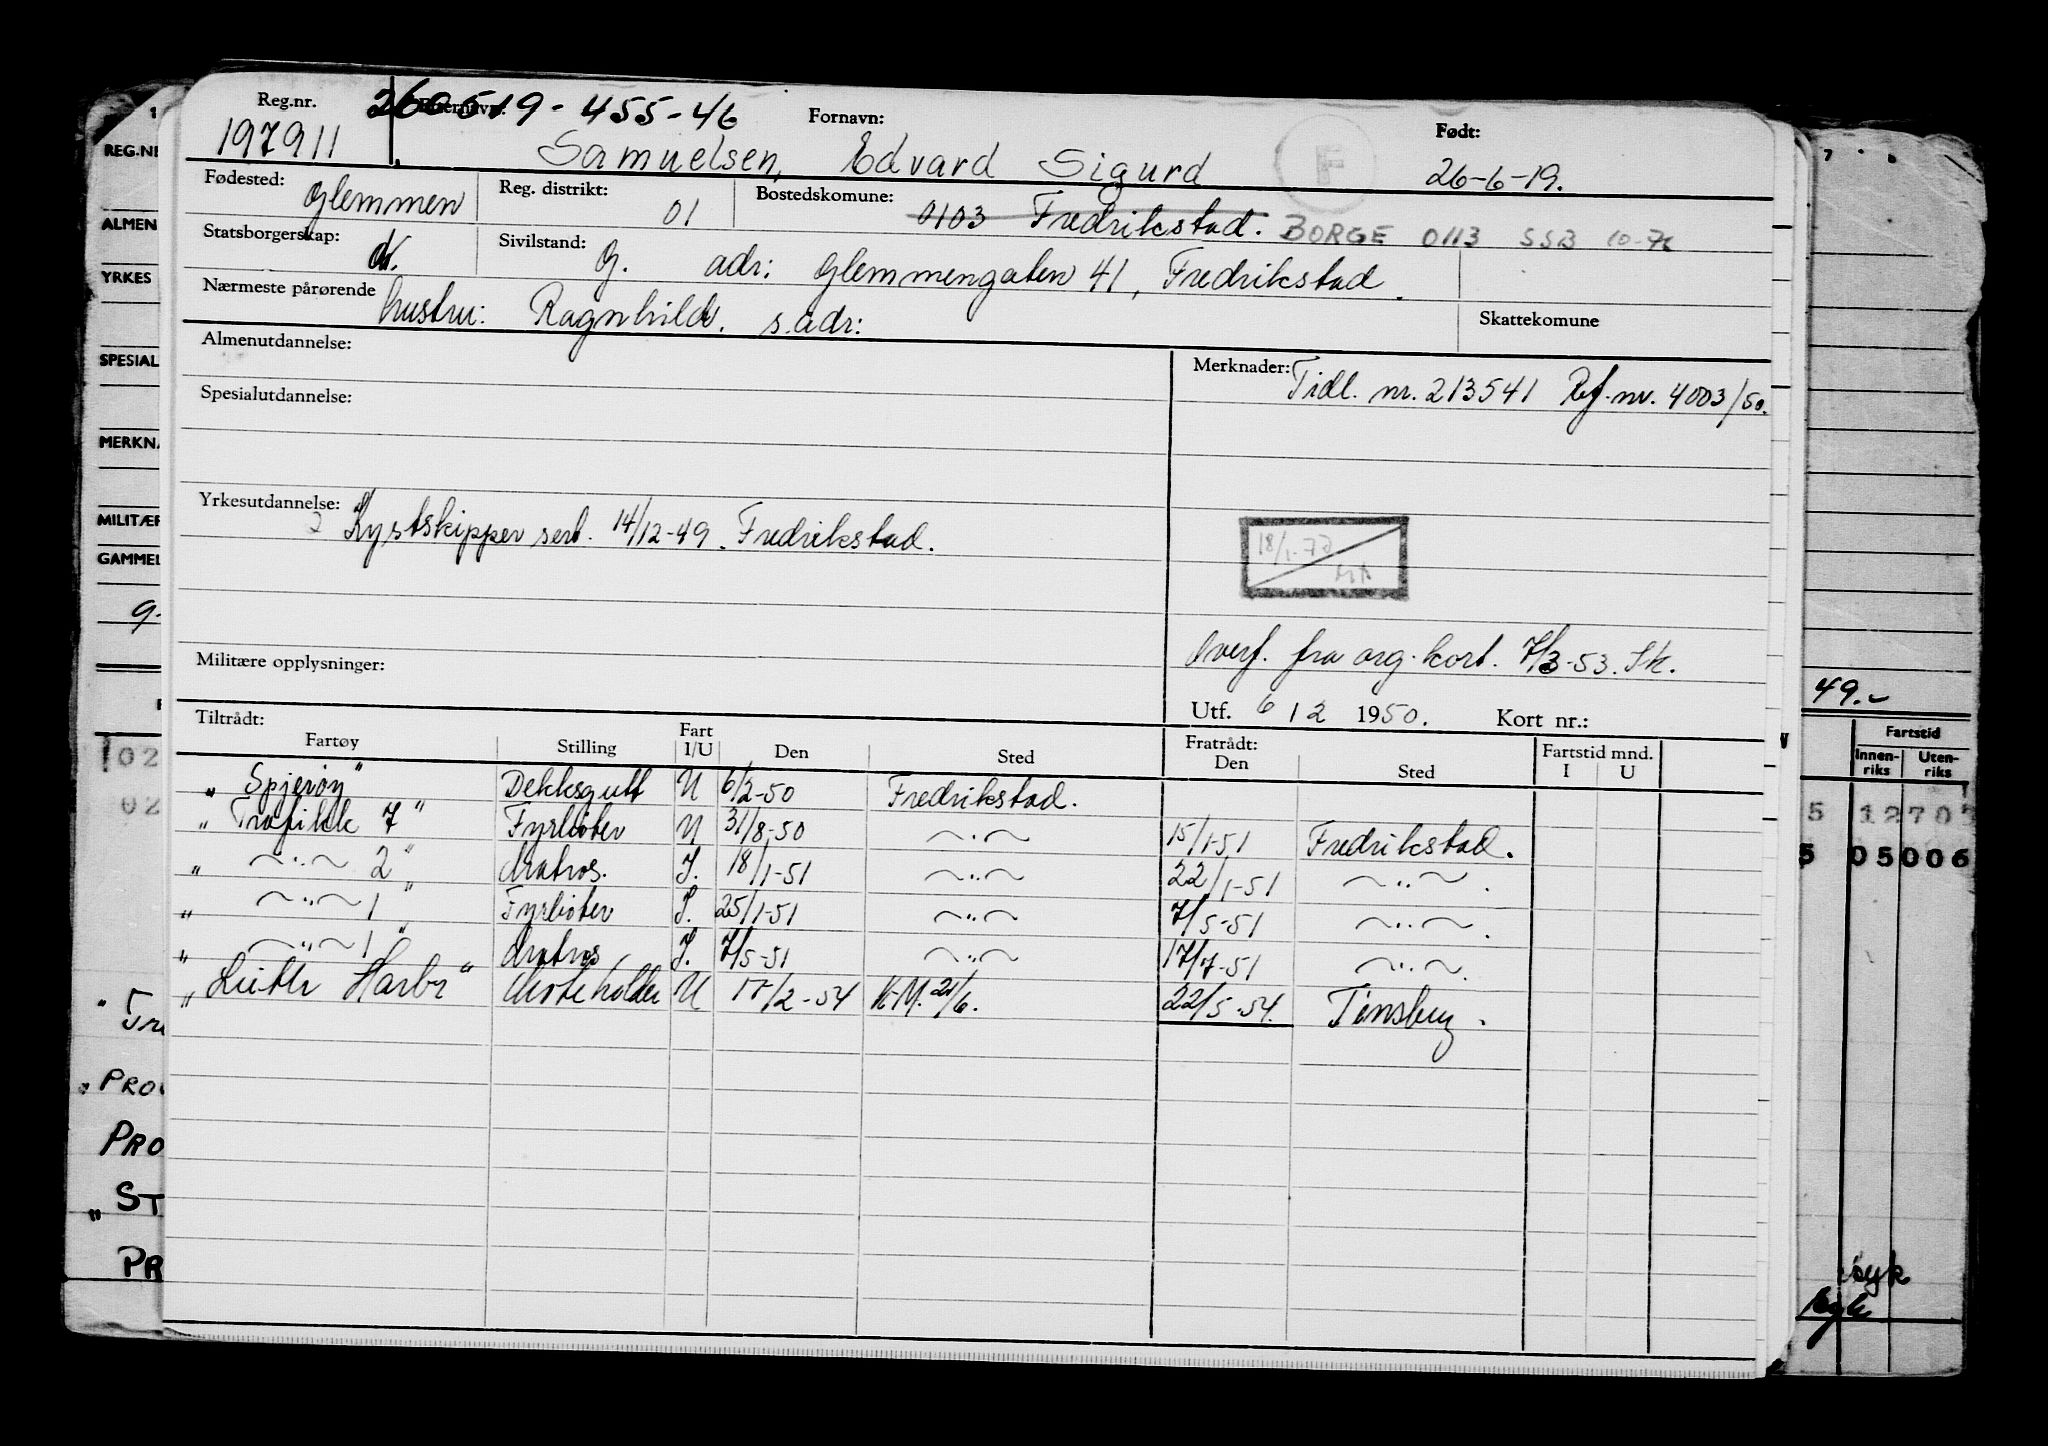 Reg.nr. 260619-455-46 Etternavn: Fornavn: Født:
197911 Samuelsen, Edvard Sigurd F 26-6-19.
Fødested: Glemmen Reg. distrikt: 01 Bostedskomune: 0103 Fredrikstad. BORGE 0113 SSB 10-76
Statsborgerskap: N. Sivilstand: G. adr: Glemmengaten 41, Fredrikstad.
Nærmeste pårørende hustru: Ragnhild. s.adr: Skattekomune
Almenutdannelse: Merknader: Tidl. nr. 213541 Ref.nr. 4003/50.
Spesialutdannelse:
Yrkesutdannelse: Kystskipper sert. 14/12-49. Fredrikstad.
18/1-72
Overf. fra org. kort. 7/3-53. Sk.
Militære opplysninger:
Utf. 6 / 2 1950. Kort nr.:
Tiltrådt: Fratrådt:
Fartøy Stilling Fart I/U Den Sted Den Sted Fartstid mnd. I U
"Spjerøy" Dekksgutt U 6/2-50 Fredrikstad.
"Trafikk 7" Fyrbøter U 31/8-50 -"- 15/1-51 Fredrikstad.
" -"- 2" Matros. I. 18/1-51 -"- 22/1-51 -"-.
" -"- 1" Fyrbøter I. 25/1-51 -"- 7/5-51 -"-.
" -"- 1" Matros I. 7/5-51 -"- 17/7-51 -"-.
" Harbr" U 15/2-54 22/5-54. Tønsberg.
REG.NR
ALMEN
YRKES
SPESIAL
MERKNA
MILITÆR
GAMMEL
9-
02
02
" Tra
" PROV
PRO
" ST
PR
7
49.-
Fartstid
Innen-riks Uten-riks
5 12707
5 05006